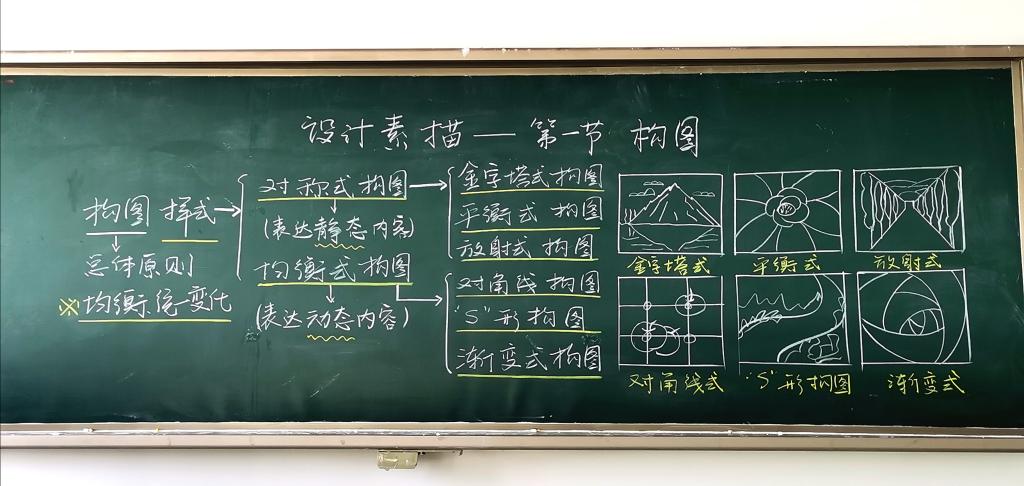 设计素描——第一节 构图
构图 样式
总体原则
※均衡统一变化
对称式构图
(表达静态内容)
均衡式构图
(表达动态内容)
金字塔式构图
平衡式构图
放射式构图
对角线构图
"S"形构图
渐变式构图
金字塔式
平衡式
放射式
对角线式
"S"形构图
渐变式